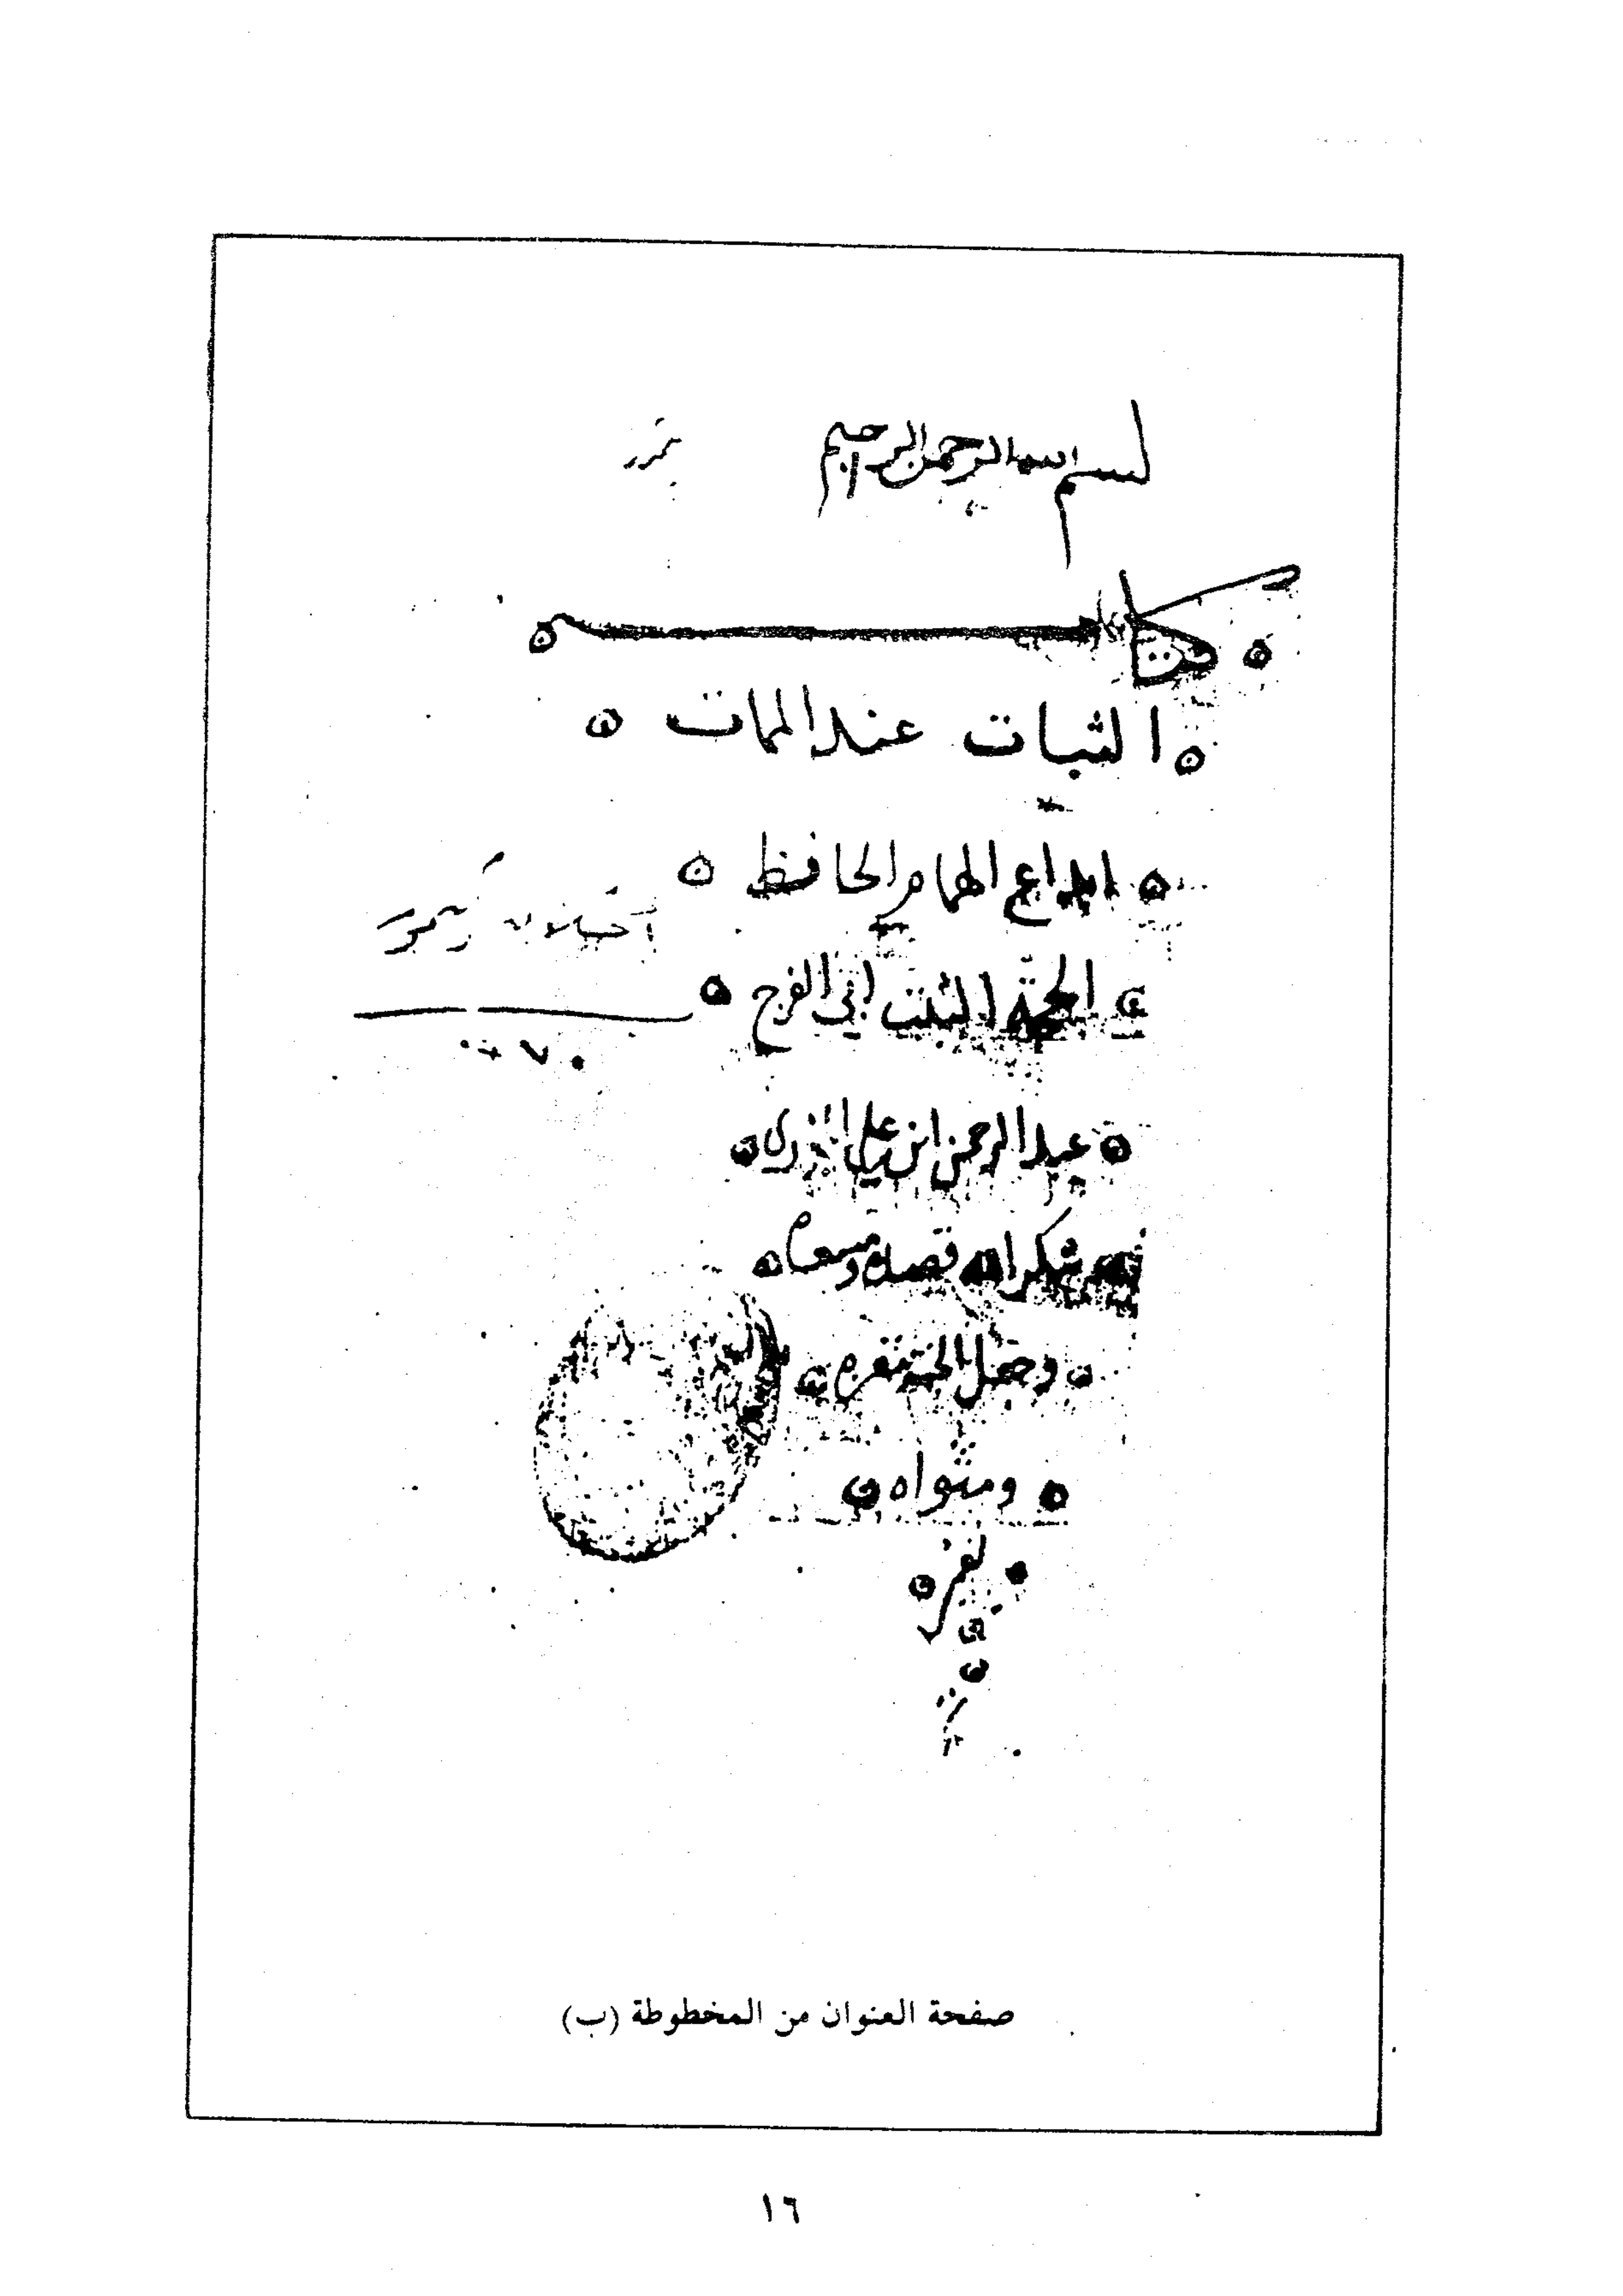 بسم الله الرحمن الرحيم
كتاب
الثبات عند الممات
ابداع الهمام الحافظ
الحجة الثبت ابي الفرج
عبد الرحمن ابن علي
شكر الله قصده ومسعاه
وجعل الجنة
ومثواه
صفحة العنوان من المخطوطة (ب)
١٦